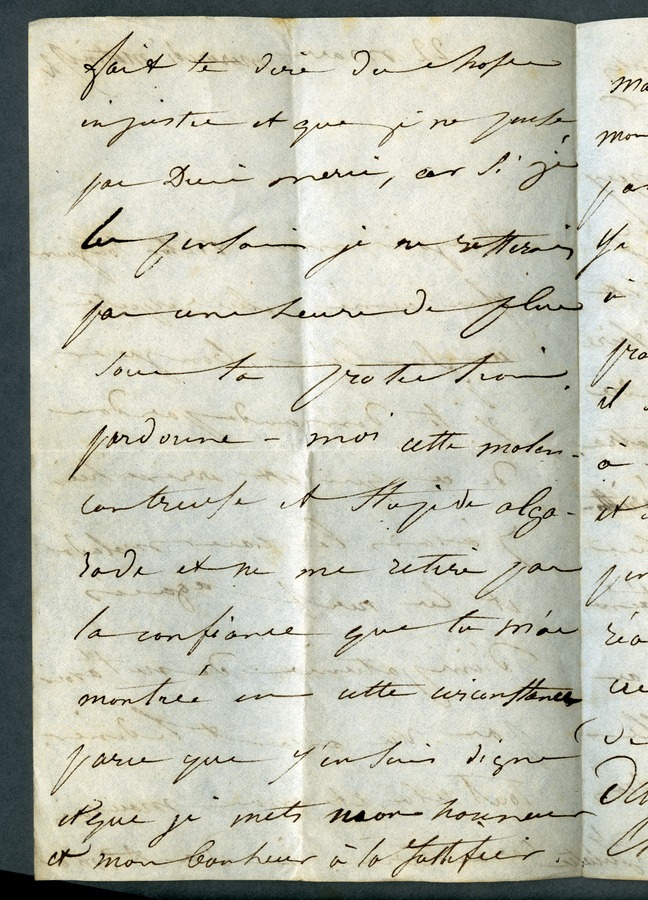 fait te dire des choses
injustes et que je ne pense
pas Dieu merci, car si je
les pensais je ne resterais
pas une heure de plus
sous ta protection.
pardonne-moi cette malen-
contreuse et stupide alga-
rade et ne me retire pas
la confiance que tu m'as
montrée en cette circonstance
parce que j'en suis digne
et que je mets mon honneur
et mon bonheur à la justifier.
ma
mon
pas
il
à
et